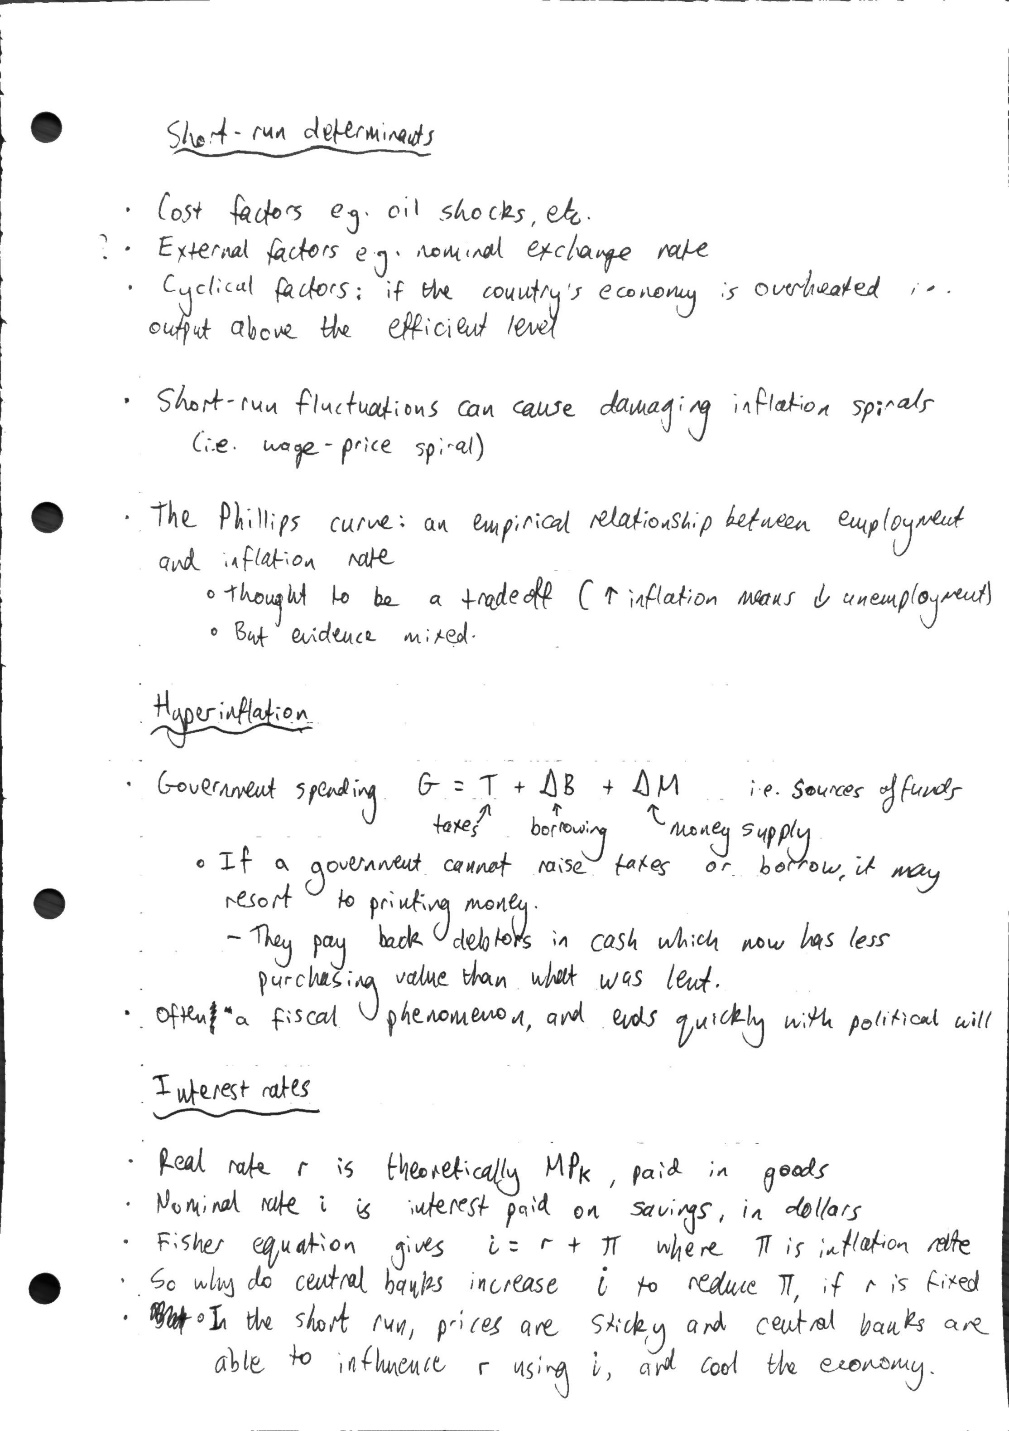 Short-run determinants
· Cost factors eg. oil shocks, etc.
? · External factors e.g. nominal exchange rate
· Cyclical factors: if the country's economy is overheated i.e.
output above the efficient level
· Short-run fluctuations can cause damaging inflation spirals
(i.e. wage-price spiral)
· The Phillips curve: an empirical relationship between employment
and inflation rate
∘ thought to be a tradeoff (↑ inflation means ↓ unemployment)
∘ But evidence mixed.
Hyperinflation
· Government spending G = T + ΔB + ΔM i.e. sources of funds
taxes borrowing money supply
∘ If a government cannot raise taxes or borrow, it may
resort to printing money.
– They pay back debtors in cash which now has less
purchasing value than what was lent.
· Often a fiscal phenomenon, and ends quickly with political will
Interest rates
· Real rate r is theoretically MPK, paid in goods
· Nominal rate i is interest paid on savings, in dollars
· Fisher equation gives i = r + π where π is inflation rate
· So why do central banks increase i to reduce π, if r is fixed
· ∘ In the short run, prices are sticky and central banks are
able to influence r using i, and cool the economy.